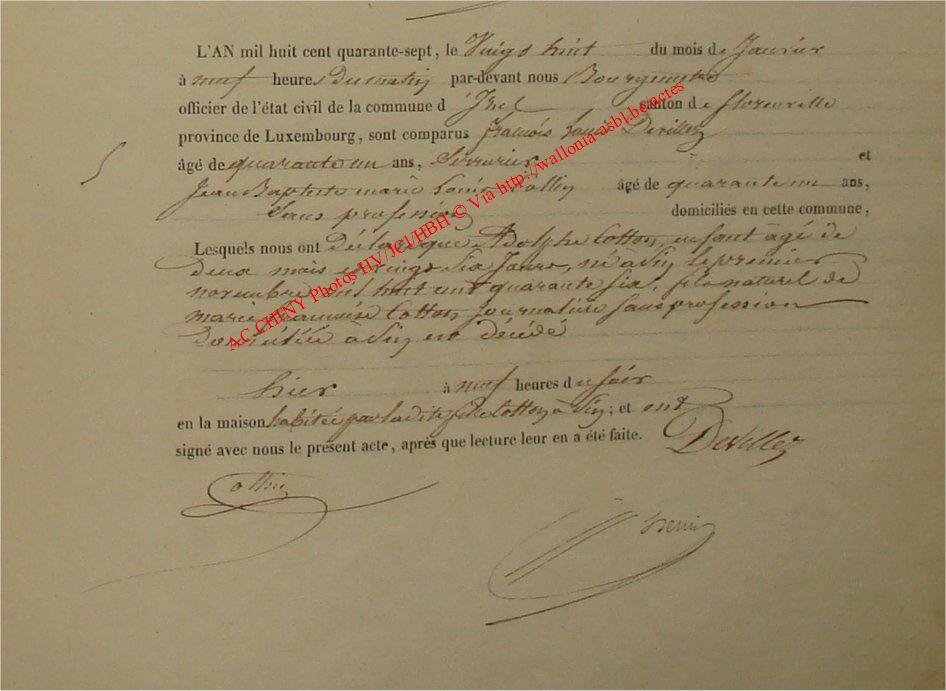 L'AN mil huit cent quarante-sept, le Vingt huit du mois de Janvier
à neuf heures du matin par-devant nous Bourgmestre
officier de l'état civil de la commune d' Izel canton de florenville
province de Luxembourg, sont comparus françois Louis Devillez
âgé de quarante un ans, Serrurier et
Jean Baptiste marie Louis Collin âgé de quarante un ans,
Sans profession domiciliés en cette commune,
Lesquels nous ont Déclaré que Adolphe Cotton, enfant âgé de
deux mois et vingt six Jours, né a le premier
novembre mil huit cent quarante six, fils naturel de
marie françoise Cotton Journalière Sans profession
Domiciliée à est décédé
hier à neuf heures du soir
en la maison habitée par la dite fille Cotton à ; et ont
signé avec nous le présent acte, après que lecture leur en a été faite.
Devillez
Collin
AC CHINY Photos HV/JCl/HBH © Via http://wallonia-asbl.be/actes